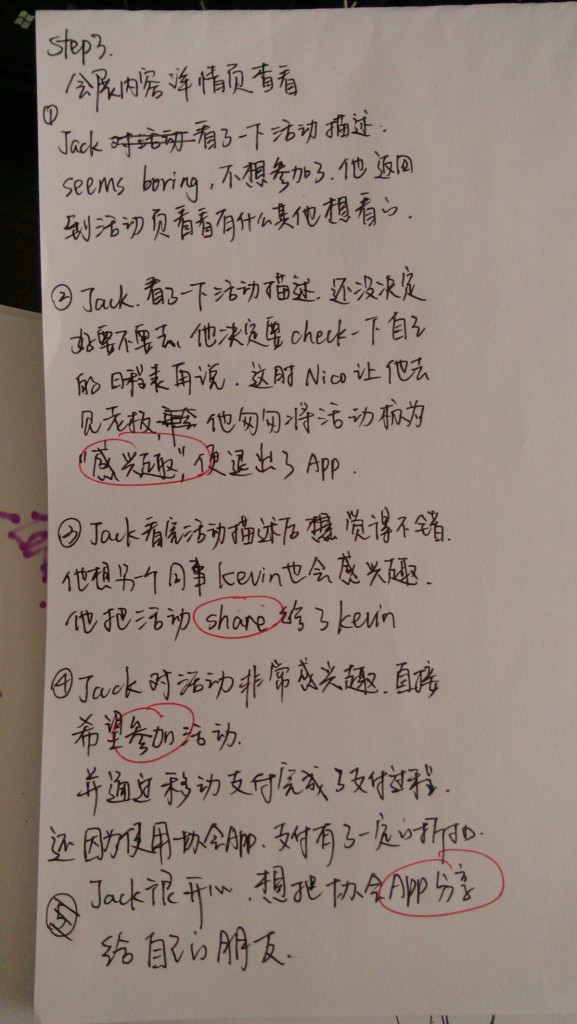 Step3.
会展内容详情页查看
① Jack 对活动 看了一下活动描述.
seems boring, 不想参加了. 他返回
到活动页看看有什么其他想看的.
② Jack. 看了一下活动描述. 还没决定
好要不要去, 他决定要check一下自己
的日程表再说. 这时Nico让他去
见老板, 他匆匆将活动标为
"感兴趣", 便退出了App.
③ Jack看完活动描述后想 觉得不错.
他想另一个同事kevin也会感兴趣.
他把活动share给了kevin
④ Jack对活动非常感兴趣. 直接
希望参加活动.
并通过移动支付完成了支付过程.
还因为使用协会App. 支付有了一定的折扣.
⑤ Jack很开心. 想把协会App分享
给自己的朋友.